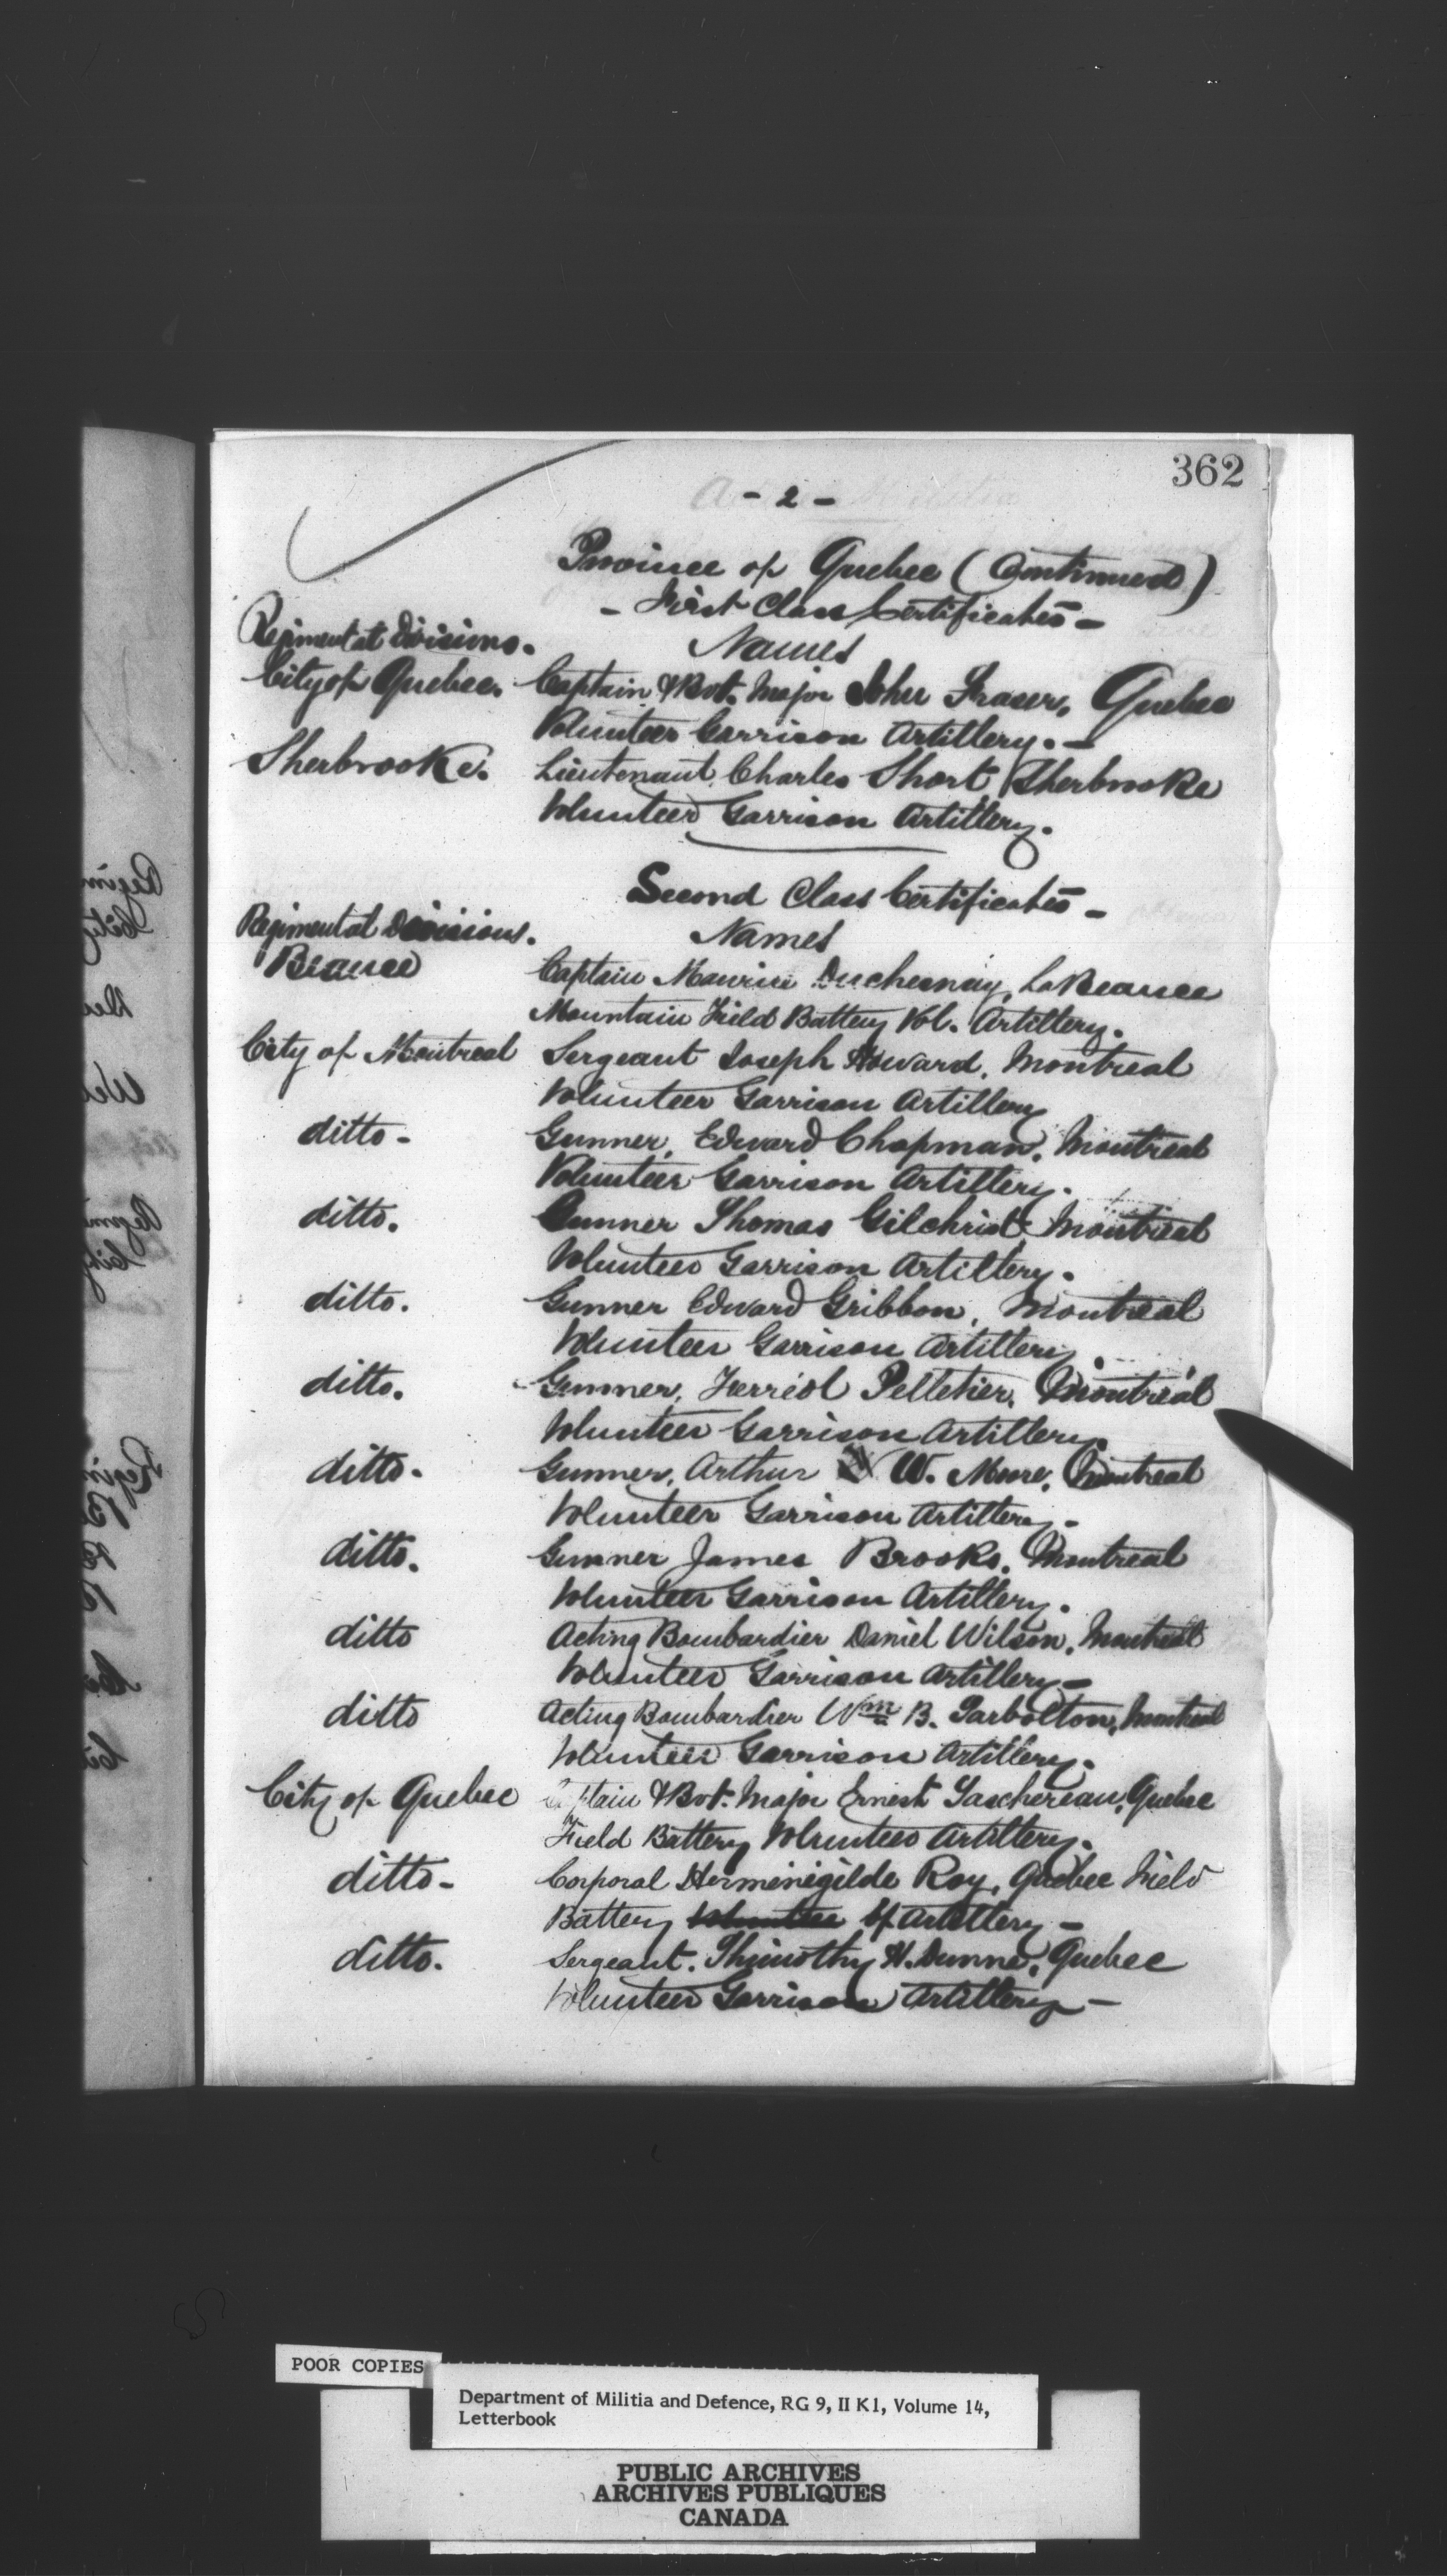 362
- 2 -
Province of Quebec (Continued)
- First Class Certificates -
Regimental Divisions. Names
City of Quebec. Captain & Bvt. Major John Fraser, Quebec
Volunteer Garrison Artillery. -
Sherbrooke. Lieutenant Charles Short, Sherbrooke
Volunteer Garrison Artillery.
Second Class Certificates -
Regimental Divisions. Names
Beauce Captain Maurice Duchesnay, La Beauce
Mountain Field Battery Vol. Artillery.
City of Montreal Sergeant Joseph Howard, Montreal
Volunteer Garrison Artillery
ditto - Gunner, Edward Chapman, Montreal
Volunteer Garrison Artillery.
ditto. Gunner Thomas Gilchrist Montreal
Volunteer Garrison Artillery.
ditto. Gunner Edward Gribbon, Montreal
Volunteer Garrison Artillery.
ditto. Gunner, Ferriol Pelletier, Montreal
Volunteer Garrison Artillery.
ditto - Gunner, Arthur W. Moore, Montreal
Volunteer Garrison Artillery -
ditto. Gunner James Brooks, Montreal
Volunteer Garrison Artillery.
ditto Acting Bombardier Daniel Wilson, Montreal
Volunteer Garrison Artillery -
ditto Acting Bombardier Wm B. Tarbolton, Montreal
Volunteer Garrison Artillery.
City of Quebec Captain & Bvt. Major Ernest Taschereau, Quebec
Field Battery Volunteer Artillery.
ditto - Corporal Herménégilde Roy, Quebec Field
Battery Volunteer of Artillery -
ditto. Sergeant. Thimothy H. Dunne, Quebec
Volunteer Garrison Artillery -
POOR COPIES
Department of Militia and Defence, RG 9, II K1, Volume 14,
Letterbook
PUBLIC ARCHIVES
ARCHIVES PUBLIQUES
CANADA